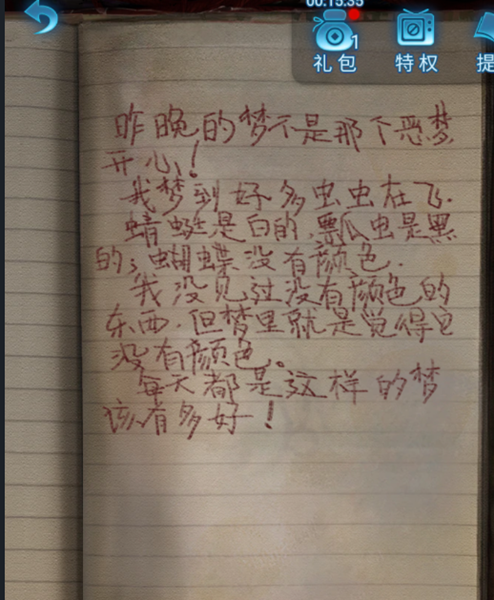 00:15:35
1
礼包
特权
提
昨晚的梦不是那个恶梦
开心！
我梦到好多虫虫在飞.
蜻蜓是白的,瓢虫是黑
的；蝴蝶没有颜色.
我没见过没有颜色的
东西.但梦里就是觉得它
没有颜色。
每天都是这样的梦
该有多好！